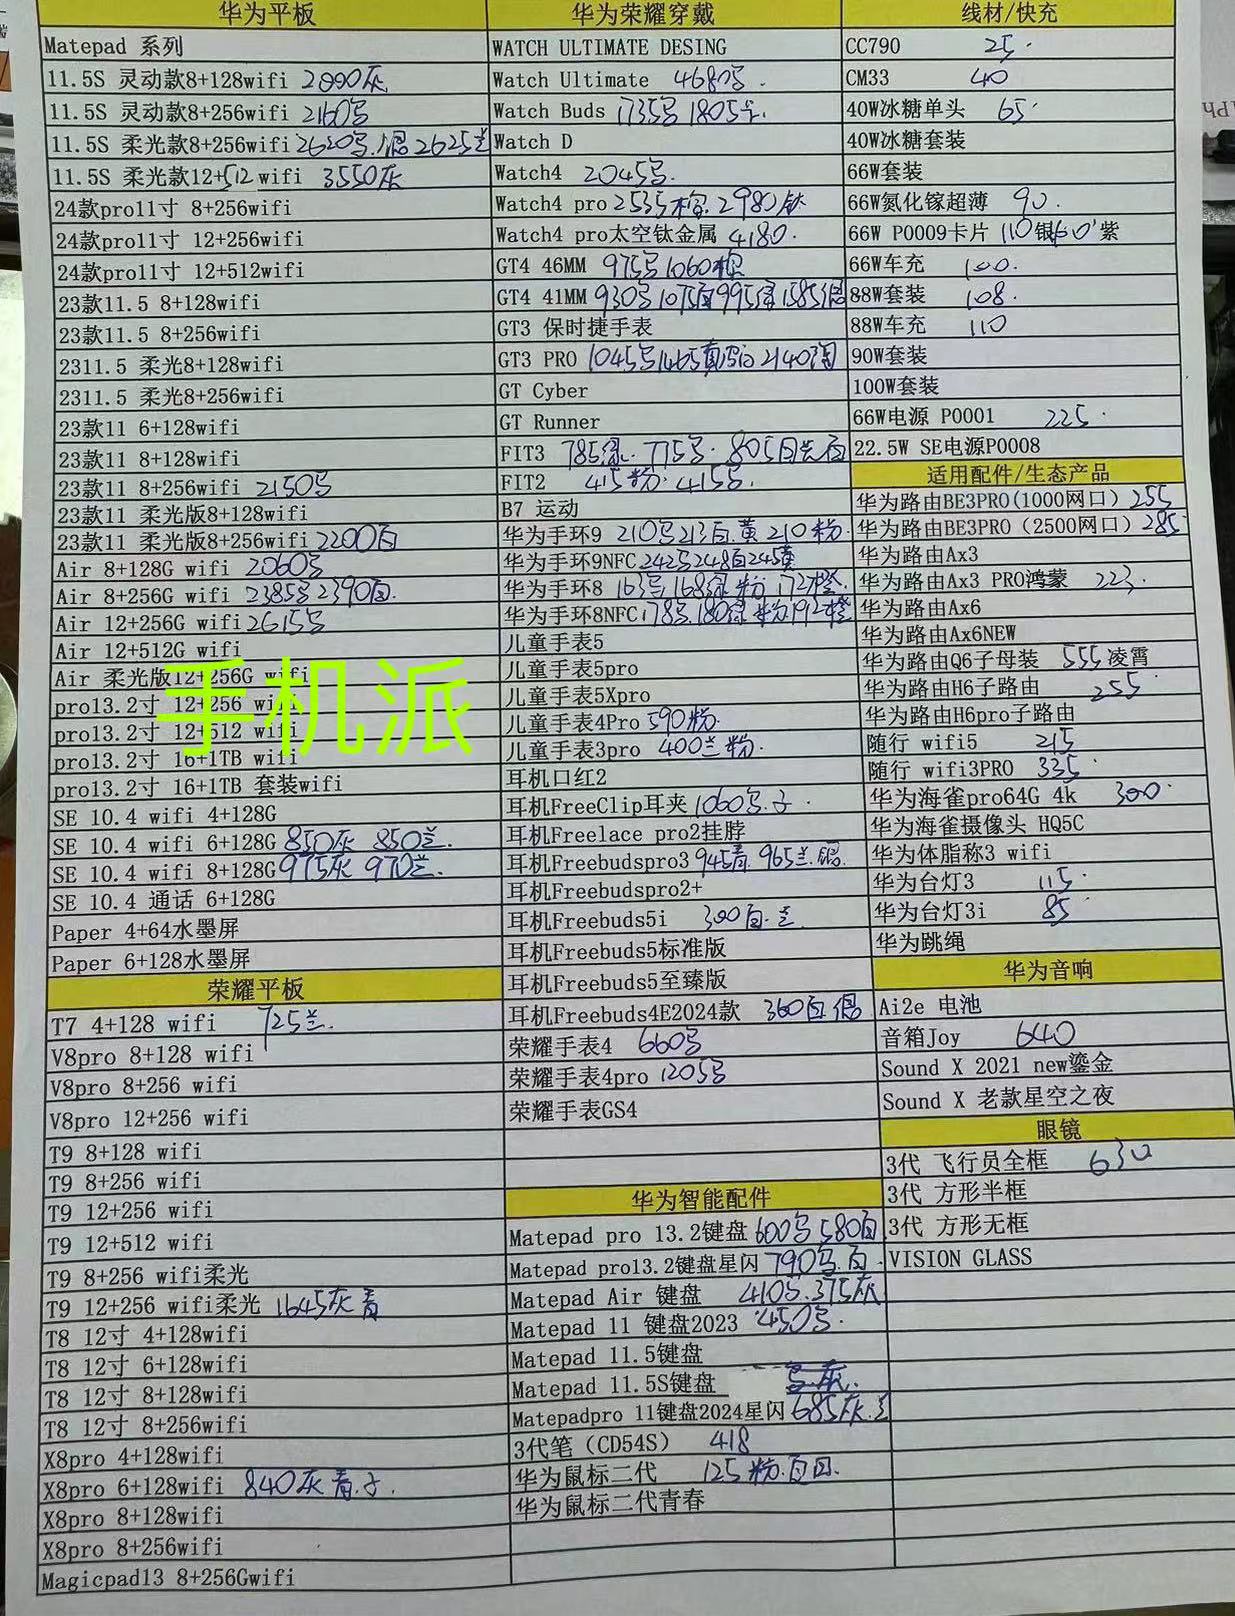 华为平板
Matepad 系列
11.5S 灵动款8+128wifi
11.5S 灵动款8+256wifi 2160
11.5S 柔光款8+256wifi
11.5S 柔光款12+512 wifi 3550灰
24款pro11寸 8+256wifi
24款pro11寸 12+256wifi
24款pro11寸 12+512wifi
23款11.5 8+128wifi
23款11.5 8+256wifi
2311.5 柔光8+128wifi
2311.5 柔光8+256wifi
23款11 6+128wifi
23款11 8+128wifi
23款11 8+256wifi 2150
23款11 柔光版8+128wifi
23款11 柔光版8+256wifi 2200白
Air 8+128G wifi 2060
Air 8+256G wifi 2385 2390白.
Air 12+256G wifi 2615
Air 12+512G wifi
Air 柔光版12+256G wifi
pro13.2寸 12+256 wifi
pro13.2寸 12+512 wifi
pro13.2寸 16+1TB wifi
pro13.2寸 16+1TB 套装wifi
手机派
SE 10.4 wifi 4+128G
SE 10.4 wifi 6+128G 850灰 850兰.
SE 10.4 wifi 8+128G 975灰 970兰.
SE 10.4 通话 6+128G
Paper 4+64水墨屏
Paper 6+128水墨屏
荣耀平板
T7 4+128 wifi 725兰.
V8pro 8+128 wifi
V8pro 8+256 wifi
V8pro 12+256 wifi
T9 8+128 wifi
T9 8+256 wifi
T9 12+256 wifi
T9 12+512 wifi
T9 8+256 wifi柔光
T9 12+256 wifi柔光 1645灰青
T8 12寸 4+128wifi
T8 12寸 6+128wifi
T8 12寸 8+128wifi
T8 12寸 8+256wifi
X8pro 4+128wifi
X8pro 6+128wifi 840灰青.
X8pro 8+128wifi
X8pro 8+256wifi
Magicpad13 8+256Gwifi
华为荣耀穿戴
WATCH ULTIMATE DESING
Watch Ultimate 4680
Watch Buds 1735 1805
Watch D
Watch4 2045
Watch4 pro 2535棕. 2980钛
Watch4 pro太空钛金属 4180.
GT4 46MM 975 1060棕
GT4 41MM 930 1075白 995绿 1585
GT3 保时捷手表
GT3 PRO 1045 1465真 2140陶
GT Cyber
GT Runner
FIT3 785绿. 715. 805白
FIT2 415粉. 415
B7 运动
华为手环9 210 213白.黄 210粉.
华为手环9NFC 242 248白 245黄
华为手环8 163 168绿粉 172橙.
华为手环8NFC 178. 180绿粉 192橙
儿童手表5
儿童手表5pro
儿童手表5Xpro
儿童手表4Pro 590粉.
儿童手表3pro 400兰粉.
耳机口红2
耳机FreeClip耳夹 1060
耳机Freelace pro2挂脖
耳机Freebudspro3 945青. 965兰.银.
耳机Freebudspro2+
耳机Freebuds5i 300白.兰
耳机Freebuds5标准版
耳机Freebuds5至臻版
耳机Freebuds4E2024款 360白
荣耀手表4 660
荣耀手表4pro 1205
荣耀手表GS4
华为智能配件
Matepad pro 13.2键盘 600 580白
Matepad pro13.2键盘星闪 790 白.
Matepad Air 键盘 410. 375灰
Matepad 11 键盘2023 450
Matepad 11.5键盘
Matepad 11.5S键盘 灰.
Matepadpro 11键盘2024星闪 685灰.
3代笔（CD54S） 418
华为鼠标二代 125粉.白
华为鼠标二代青春
线材/快充
CC790 25.
CM33 40
40W冰糖单头 65
40W冰糖套装
66W套装
66W氮化镓超薄 90.
66W P0009卡片 110银 紫
66W车充 100.
88W套装 108.
88W车充 110
90W套装
100W套装
66W电源 P0001 225.
22.5W SE电源P0008
适用配件/生态产品
华为路由BE3PRO(1000网口) 255
华为路由BE3PRO（2500网口）285
华为路由Ax3
华为路由Ax3 PRO鸿蒙 223.
华为路由Ax6
华为路由Ax6NEW
华为路由Q6子母装 555凌霄
华为路由H6子路由 255
华为路由H6pro子路由
随行 wifi5 215
随行 wifi3PRO 335
华为海雀pro64G 4k 300.
华为海雀摄像头 HQ5C
华为体脂称3 wifi
华为台灯3 115.
华为台灯3i 85
华为跳绳
华为音响
Ai2e 电池
音箱Joy 640
Sound X 2021 new鎏金
Sound X 老款星空之夜
眼镜
3代 飞行员全框 630
3代 方形半框
3代 方形无框
VISION GLASS